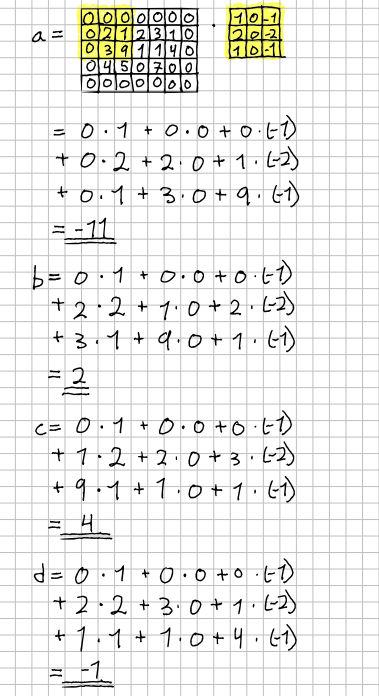 0 0 0 0 0 0 0 1 0 -1
a = 0 2 1 2 3 1 0 · 2 0 -2
0 3 9 1 1 4 0 1 0 -1
0 4 5 0 7 0 0
0 0 0 0 0 0 0
= 0 · 1 + 0 · 0 + 0 · (-1)
+ 0 · 2 + 2 · 0 + 1 · (-2)
+ 0 · 1 + 3 · 0 + 9 · (-1)
= -11
b = 0 · 1 + 0 · 0 + 0 · (-1)
+ 2 · 2 + 1 · 0 + 2 · (-2)
+ 3 · 1 + 9 · 0 + 1 · (-1)
= 2
c = 0 · 1 + 0 · 0 + 0 · (-1)
+ 1 · 2 + 2 · 0 + 3 · (-2)
+ 9 · 1 + 1 · 0 + 1 · (-1)
= 4
d = 0 · 1 + 0 · 0 + 0 · (-1)
+ 2 · 2 + 3 · 0 + 1 · (-2)
+ 1 · 1 + 1 · 0 + 4 · (-1)
= -1